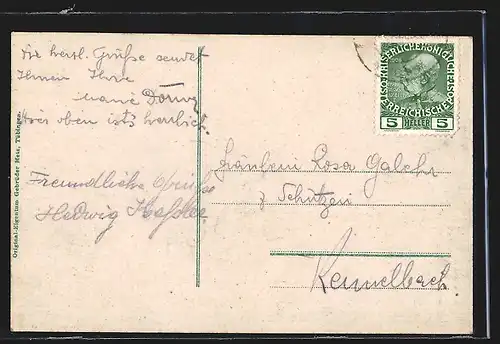 herzl. Grüße sendet
Ihnen Ihre
hier oben ist's herrlich.
Freundliche Grüße
Hedwig
Original-Eigentum Gebrüder Metz, Tübingen.
KAISERLICHE KÖNIGLICHE ÖSTERREICHISCHE
5 HELLER 5
Fräulein Rosa
z Schützen
Kennelbach